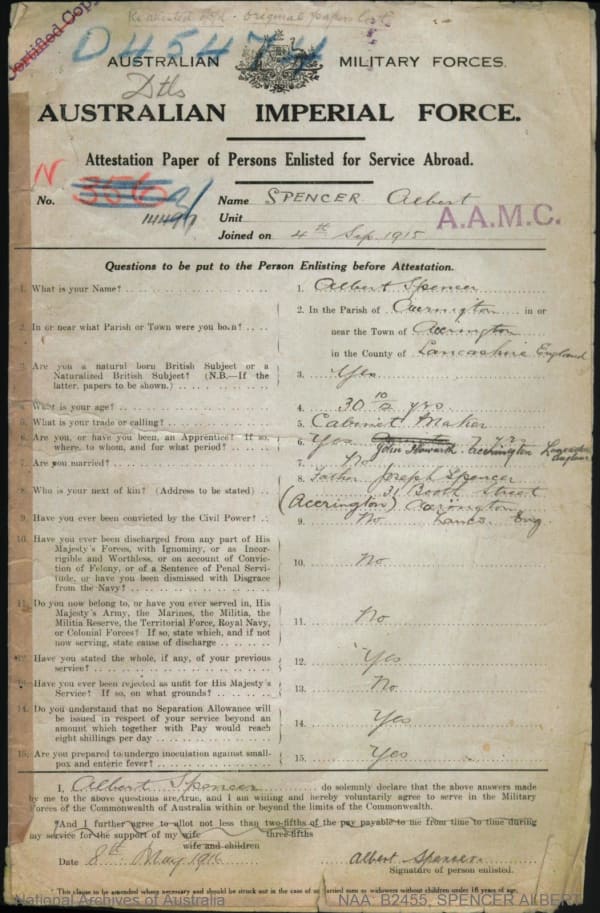 Certified Copy
original papers lost
D45474
AUSTRALIAN MILITARY FORCES.
AUSTRALIAN IMPERIAL FORCE.
Attestation Paper of Persons Enlisted for Service Abroad.
N
No. 356
14497
Name SPENCER Albert
Unit
A.A.M.C.
Joined on 4th Sep. 1915
Questions to be put to the Person Enlisting before Attestation.
1. What is your Name? 1. Albert Spencer
2. In or near what Parish or Town were you born? 2. In the Parish of Accrington in or
near the Town of Accrington
in the County of Lancashire England
3. Are you a natural born British Subject or a
Naturalized British Subject? (N.B.—If the
latter, papers to be shown.) 3. Yes
4. What is your age? 4. 30 10/12 yrs
5. What is your trade or calling? 5. Cabinet Maker
6. Are you, or have you been, an Apprentice? If so,
where, to whom, and for what period? 6. Yes John Howarth Accrington Lancashire England
7. Are you married? 7. No
8. Who is your next of kin? (Address to be stated) 8. Father Joseph Spencer
31 Booth Street
(Accrington) Accrington
Lancs Eng
9. Have you ever been convicted by the Civil Power? 9. No
10. Have you ever been discharged from any part of His
Majesty's Forces, with Ignominy, or as Incor-
rigible and Worthless, or on account of Convic-
tion of Felony, or of a Sentence of Penal Servi-
tude, or have you been dismissed with Disgrace
from the Navy? 10. No
11. Do you now belong to, or have you ever served in, His
Majesty's Army, the Marines, the Militia, the
Militia Reserve, the Territorial Force, Royal Navy,
or Colonial Forces? If so, state which, and if not
now serving, state cause of discharge 11. No
12. Have you stated the whole, if any, of your previous
service? 12. Yes
13. Have you ever been rejected as unfit for His Majesty's
Service? If so, on what grounds? 13. No
14. Do you understand that no Separation Allowance will
be issued in respect of your service beyond an
amount which together with Pay would reach
eight shillings per day 14. Yes
15. Are you prepared to undergo inoculation against small-
pox and enteric fever? 15. Yes
I, Albert Spencer do solemnly declare that the above answers made
by me to the above questions are true, and I am willing and hereby voluntarily agree to serve in the Military
Forces of the Commonwealth of Australia within or beyond the limits of the Commonwealth.
*And I further agree to allot not less than two-fifths of the pay payable to me from time to time during
three-fifths
my service for the support of my wife
wife and children
Date 8th May 1916 Albert Spencer
Signature of person enlisted.
*This clause to be amended where necessary and should be struck out in the case of unmarried men or widowers without children under 16 years of age.
National Archives of Australia NAA: B2455, SPENCER ALBERT